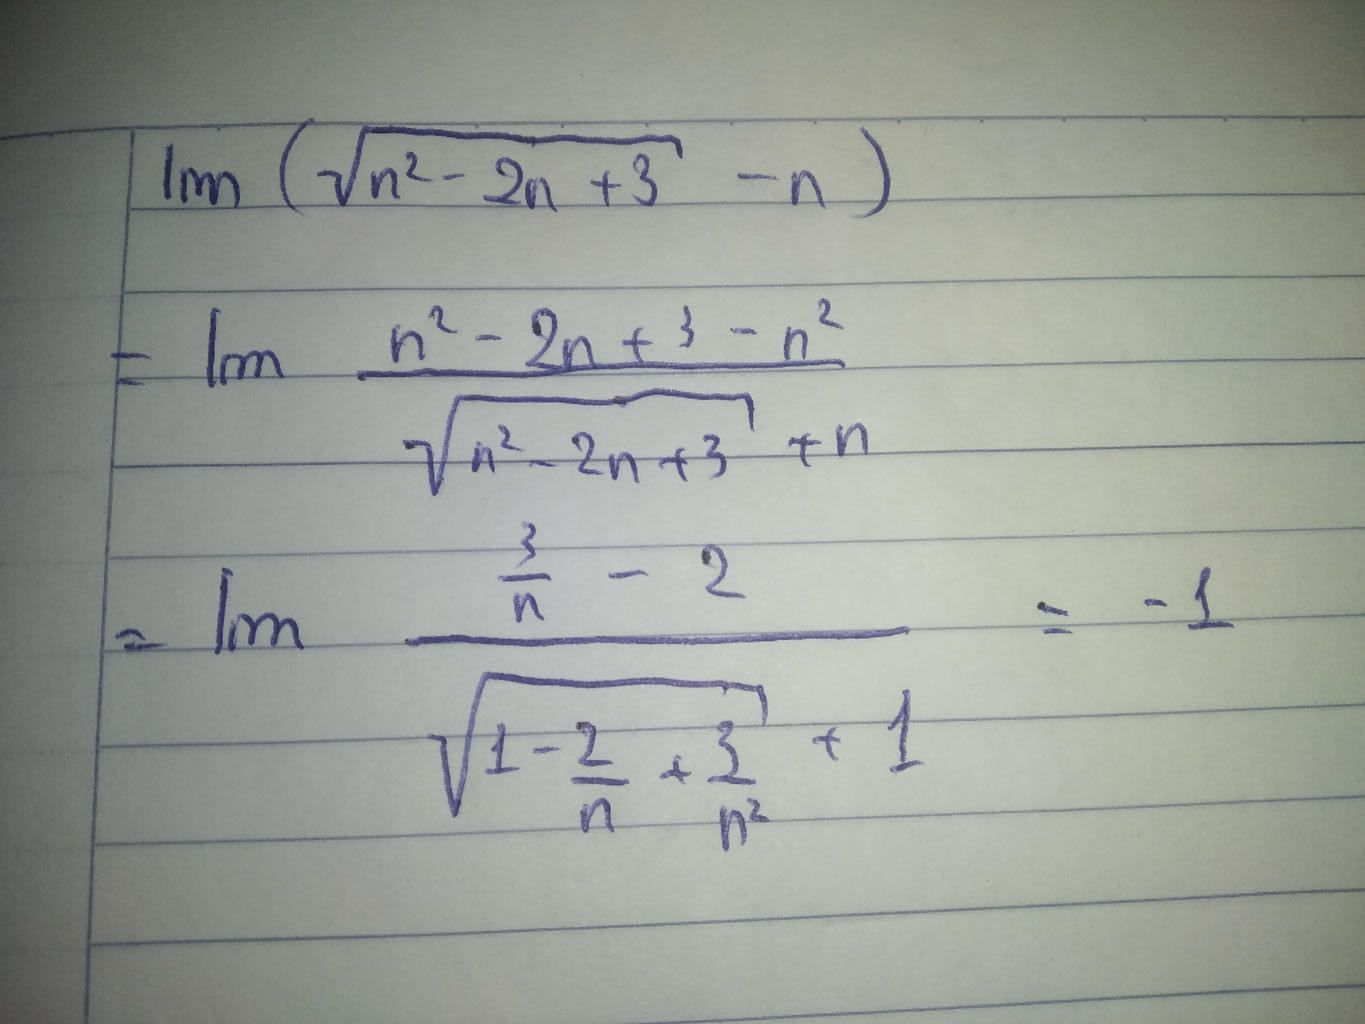 lim ( √(n² - 2n + 3) - n )
= lim (n² - 2n + 3 - n²) / (√(n² - 2n + 3) + n)
= lim (3/n - 2) / (√(1 - 2/n + 3/n²) + 1) = -1